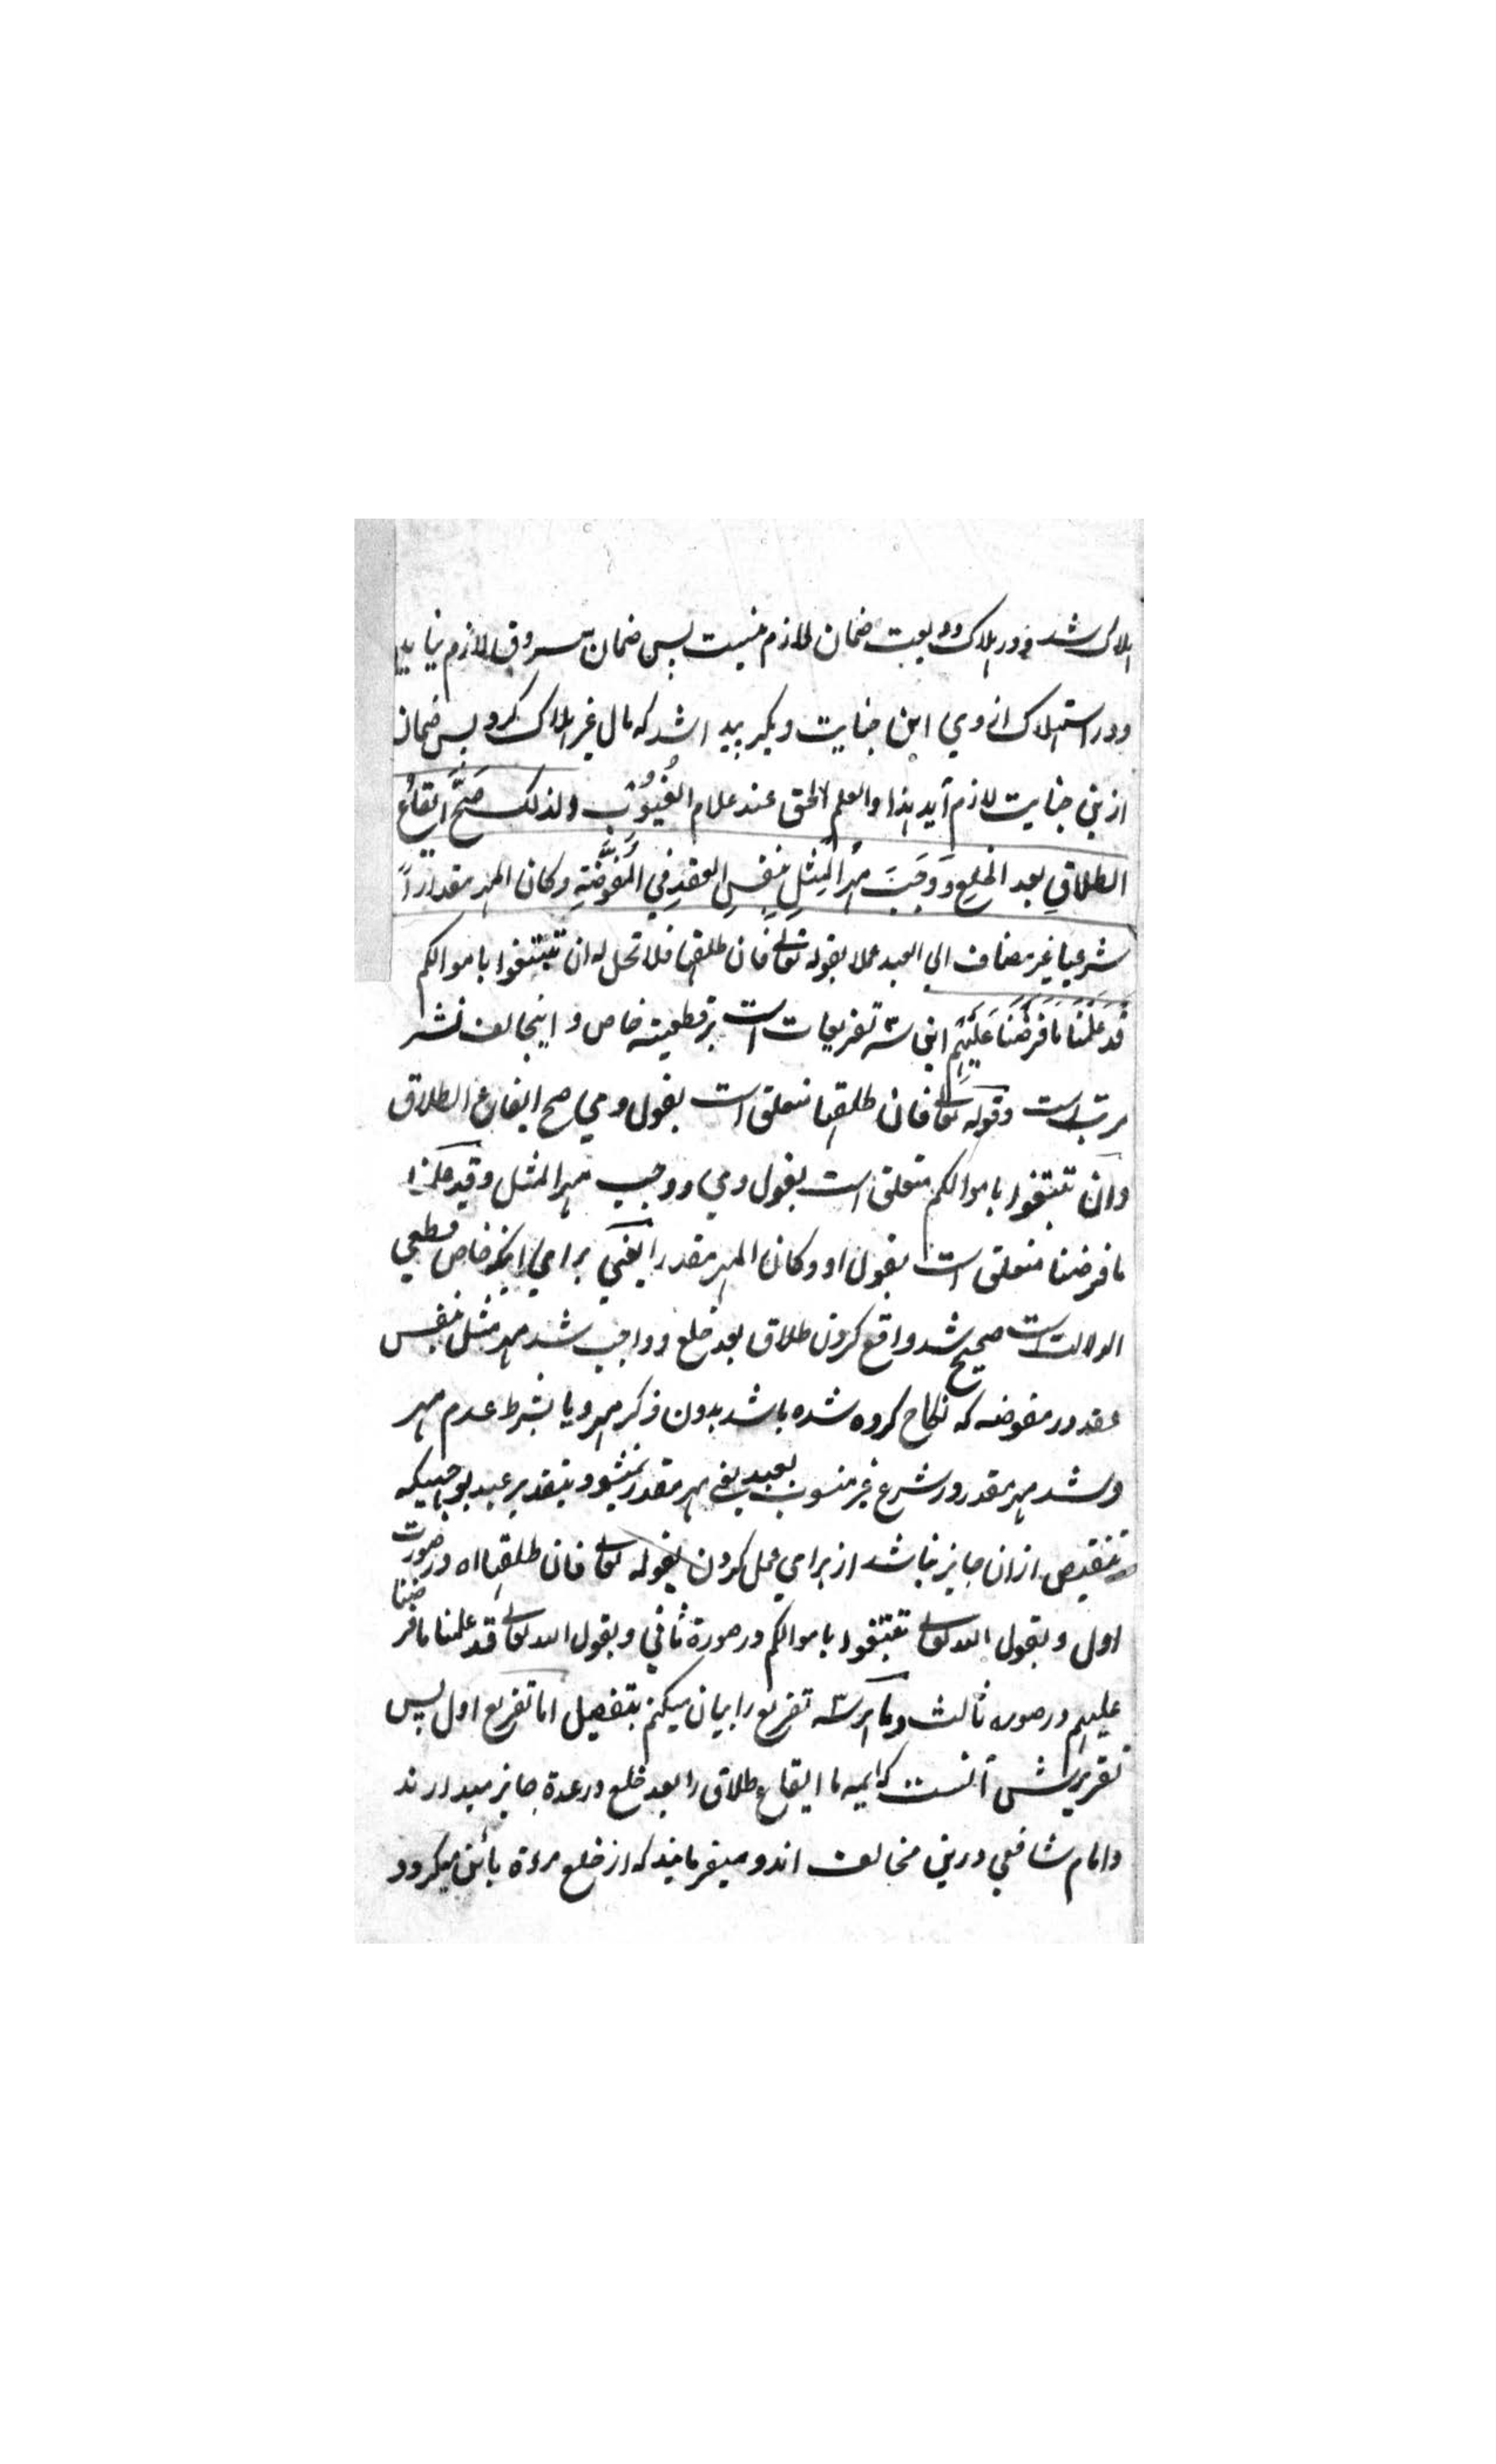 هلاک شد و در هلاک ودیعت ضمان لازم نیست پس ضمان مسروق لازم نیاید
و در استهلاک از وی این جنایت دیگر پیدا شد که مال غیر هلاک کرد پس ضمان
ازین جنایت لازم آید هذا والعلم الحق عند علام الغُیُوْبِ ولذلک صَحَّ اِیقَاعُ
الطلاقِ بعد الخلعِ وَوَجَبَ مَهْرُ الْمِثْلِ بِنَفْسِ العقدِ فِي الْمُفَوَّضَةِ وکان المهر مقدراً
شرعیا غیر مضاف الی العبد عملا بقوله تعالی فان طلقها فلا تحل له ان تبتغوا باموالکم
قَدْ عَلِمْنَا مَا فَرَضْنَا عَلَیْهِمْ این سه تفریعات است بر قطعیته خاص و اینجا لف نشر
مرتب است و قوله تعالی فان طلقها متعلق است بقول وی صح ایقاع الطلاق
وان تبتغوا باموالکم متعلق است بقول وی ووجب مهر المثل وقد علمنا
ما فرضنا متعلق است بقول او وکان المهر مقدرا یعنی برای اینکه خاص قطعی
الدلالت است صحیح شد واقع کردن طلاق بعد خلع و واجب شد مهر مثل بنفس
عقد در مفوضه که نکاح کرده شده باشد بدون ذکر مهر و یا بشرط عدم مهر
و شد مهر مقدر در شرع غیر منسوب بعبد یعنی مهر مقدر نمیشود بتقدیر عبد بوجهیکه
تنقیص ازان جایز نباشد از برای عمل کردن بقوله تعالی فان طلقها اه در صورت
اول و بقول الله تعالی تبتغوا باموالکم در صورة ثانی و بقول الله تعالی قد علمنا ما فرضنا
علیهم در صوره ثالث و ما هر سه تفریع را بیان میکنم بتفصیل اما تفریع اول پس
تقریرش آنست که ایمه ما ایقاع طلاق را بعد خلع در عدة جایز میدارند
و امام شافعی درین مخالف اند و میفرمایند که از خلع مرءة بائن میگردد